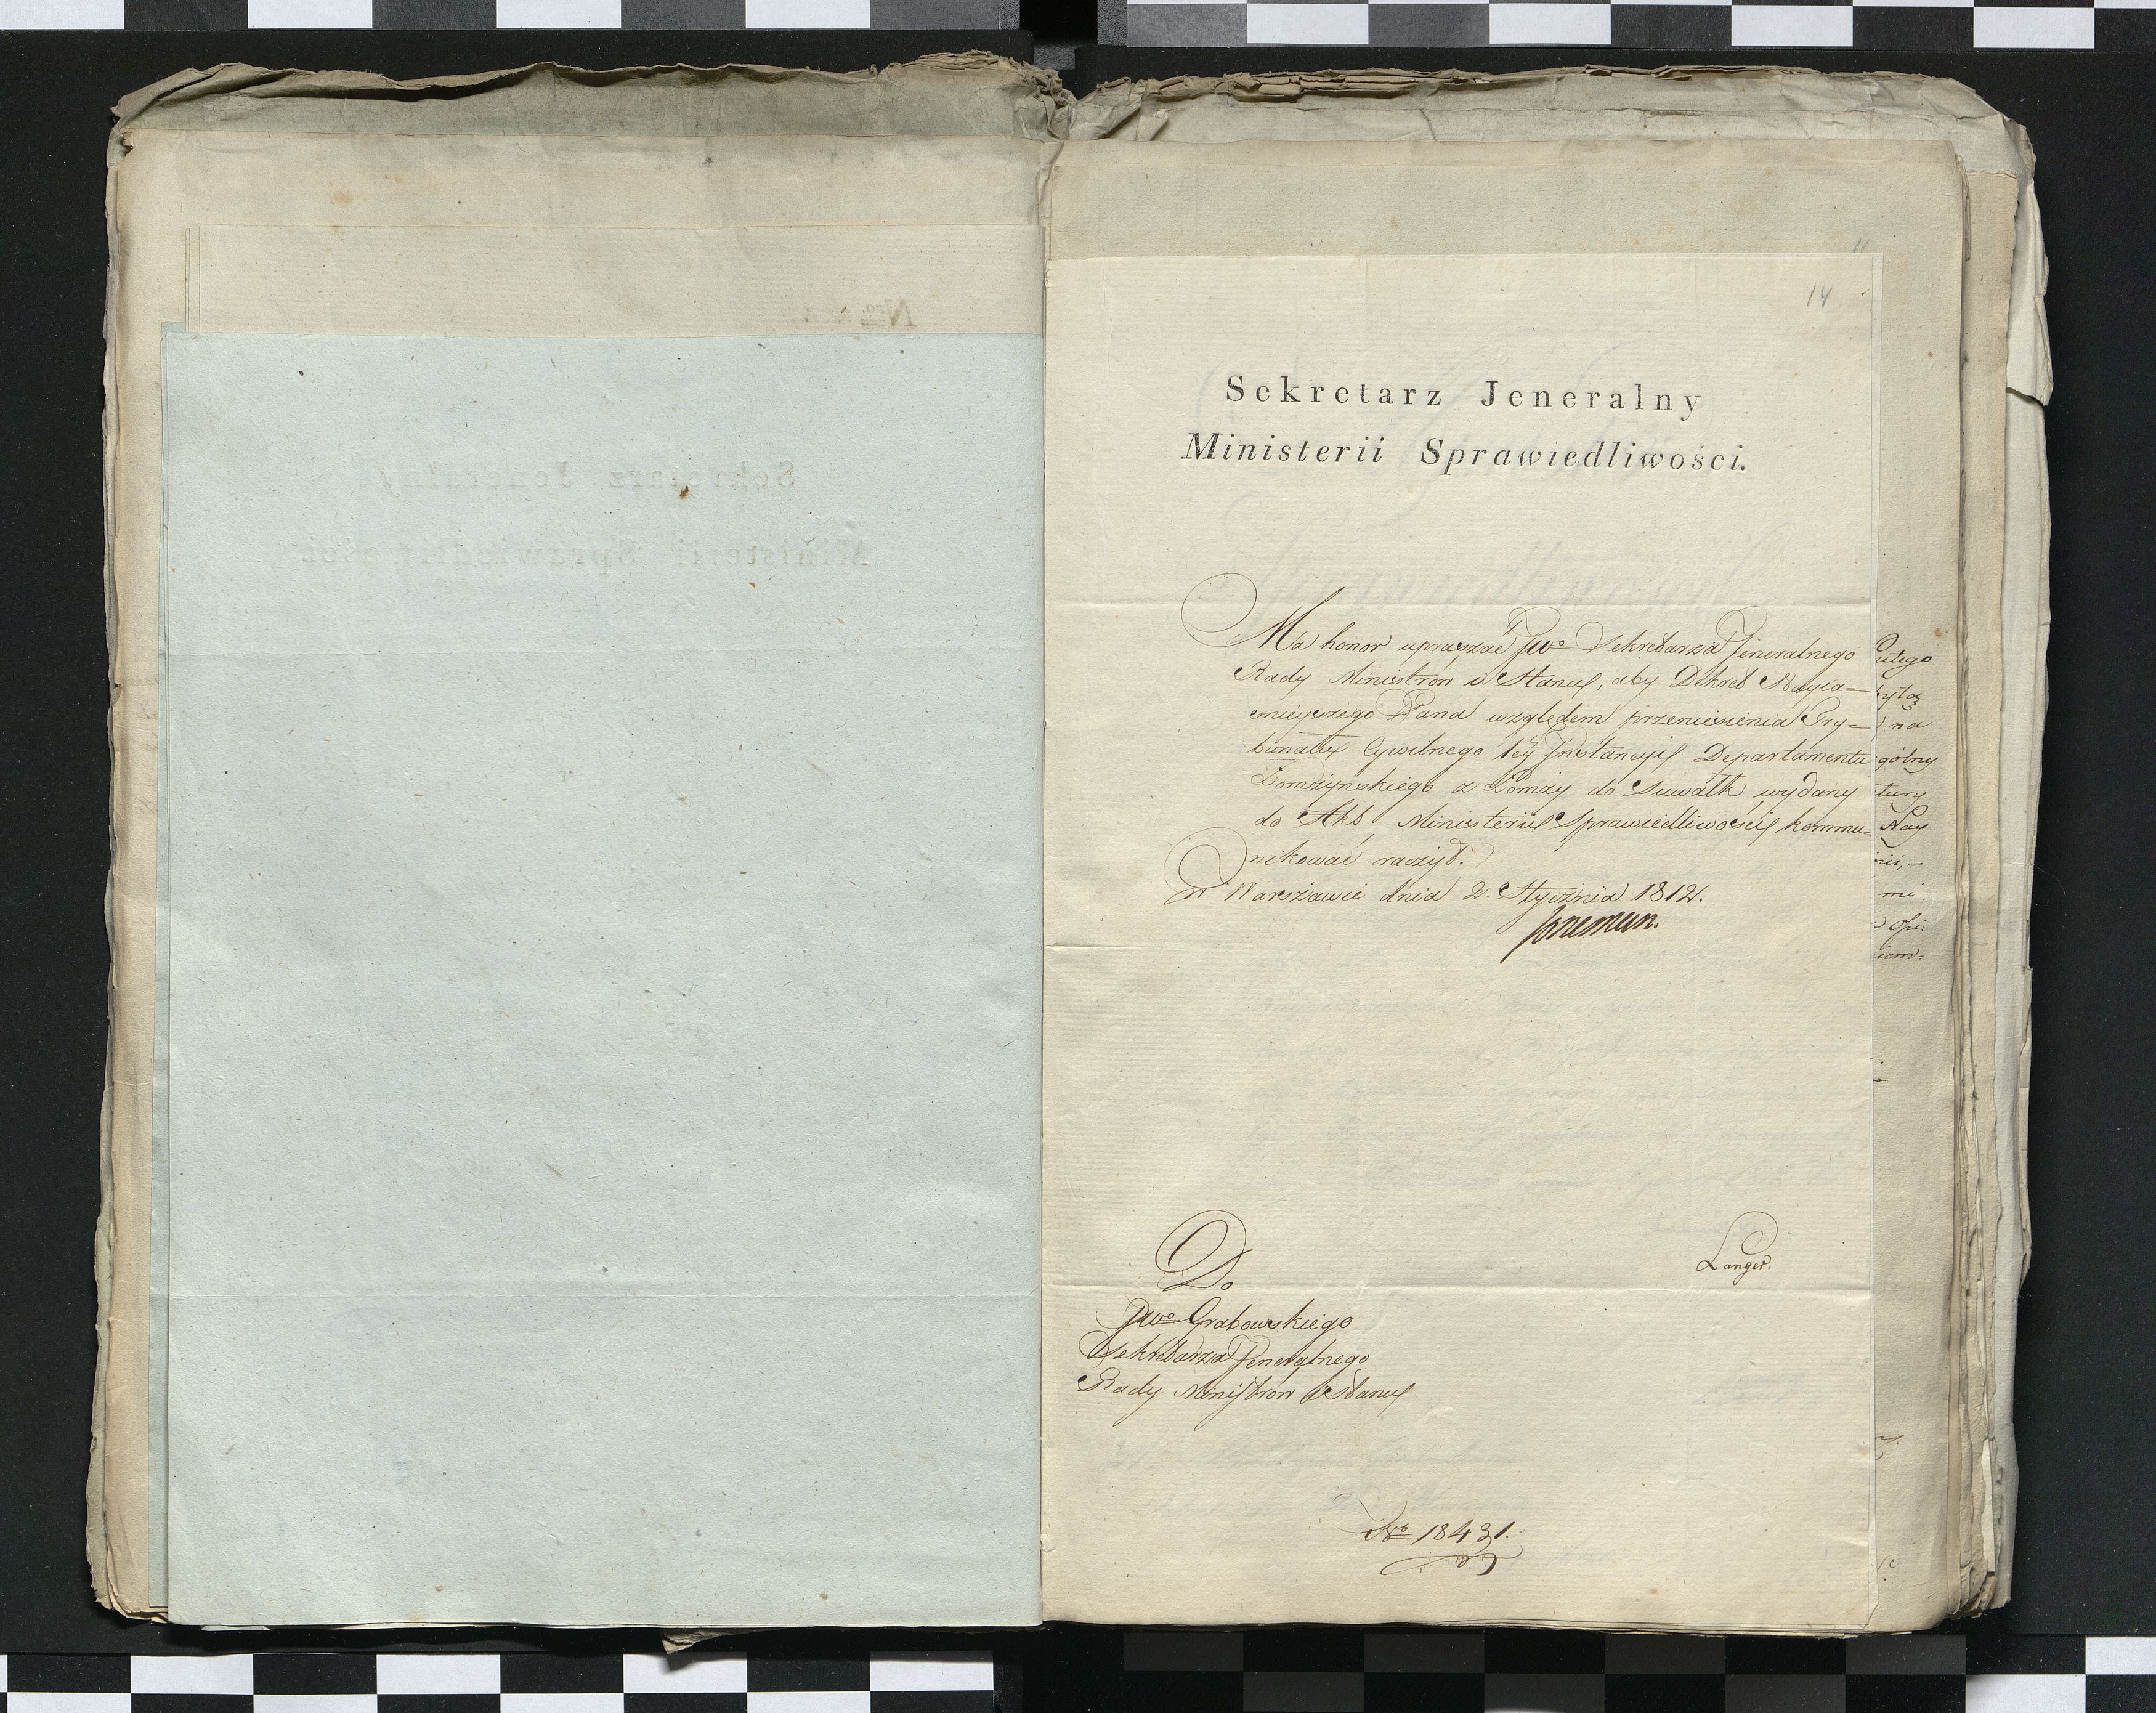 Nro.
11
14
Sekretarz Jeneralny
Ministerii Sprawiedliwości.
Ma honor upraszać JWo Sekretarza Jeneralnego
Rady Ministrów i Stanu, aby Dekret Nayia-
śnieyszego Pana względem przeniesienia Try-
bunału Cywilnego 1ey Instancyi Departamentu
Łomżyńskiego z Łomży do Suwałk wydany
do Akt Ministerii Sprawiedliwości kommu-
nikować raczył.
w Warszawie dnia 2. Stycznia 1812.
Langer.
Do
JWo Grabowskiego
Sekretarza Jeneralnego
Rady Ministrów i Stanu
Nro 18431.
utego
na
gólny
tury
Nay
mi